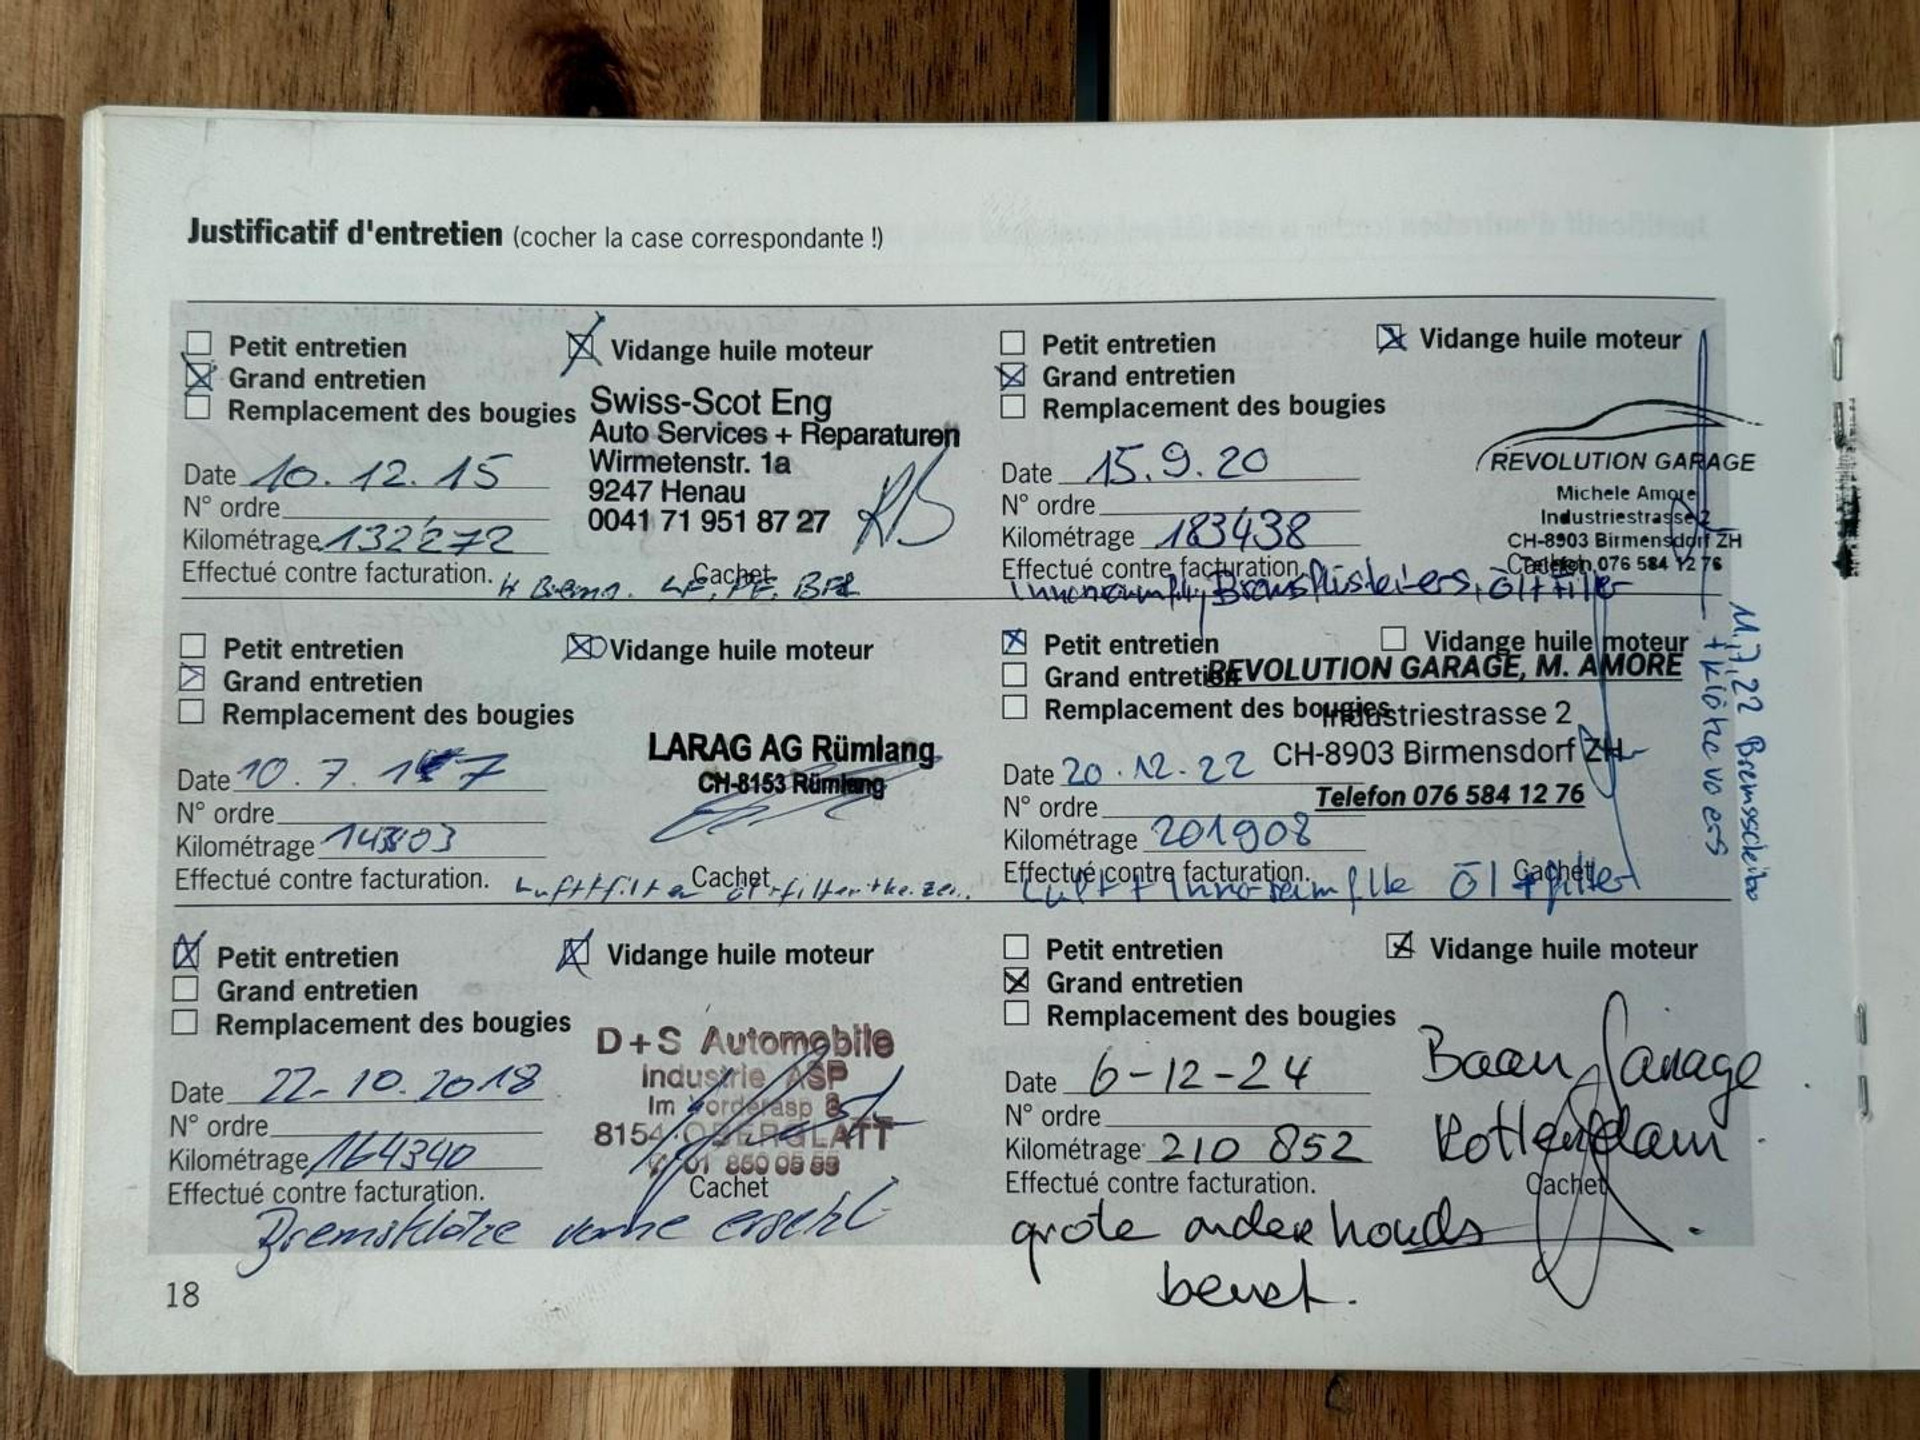 Justificatif d'entretien (cocher la case correspondante !)
Petit entretien
Vidange huile moteur
Grand entretien
Remplacement des bougies
Swiss-Scot Eng
Auto Services + Reparaturen
Wirmetenstr. 1a
9247 Henau
0041 71 951 87 27
Date 10.12.15
N° ordre
Kilométrage 132272
Effectué contre facturation.
Cachet
LF, PF, BFL
Petit entretien
Vidange huile moteur
Grand entretien
Remplacement des bougies
LARAG AG Rümlang
CH-8153 Rümlang
Date 10.7.17
N° ordre
Kilométrage
Effectué contre facturation.
Cachet
Petit entretien
Vidange huile moteur
Grand entretien
Remplacement des bougies
D+S Automobile
Industrie ASP
Im Vorderasp
8154 OBERGLATT
01 850 05 59
Date 22-10.2018
N° ordre
Kilométrage 164340
Effectué contre facturation.
Cachet
Bremsklötze vorne ersetzt
18
Petit entretien
Vidange huile moteur
Grand entretien
Remplacement des bougies
REVOLUTION GARAGE
Michele Amore
Industriestrasse 2
CH-8903 Birmensdorf ZH
Telefon 076 584 12 76
Date 15.9.20
N° ordre
Kilométrage 183438
Effectué contre facturation.
Cachet
Öl+Filter
Petit entretien
Vidange huile moteur
Grand entretien
Remplacement des bougies
REVOLUTION GARAGE, M. AMORE
Industriestrasse 2
CH-8903 Birmensdorf ZH
Telefon 076 584 12 76
Date 20.12.22
N° ordre
Kilométrage 201908
Effectué contre facturation.
Cachet
Luft + Öl+filter
7,22 Bremsscheibe
Petit entretien
Vidange huile moteur
Grand entretien
Remplacement des bougies
Baan Garage
Rotterdam
Date 6-12-24
N° ordre
Kilométrage 210 852
Effectué contre facturation.
Cachet
grote onderhouds
beurt.